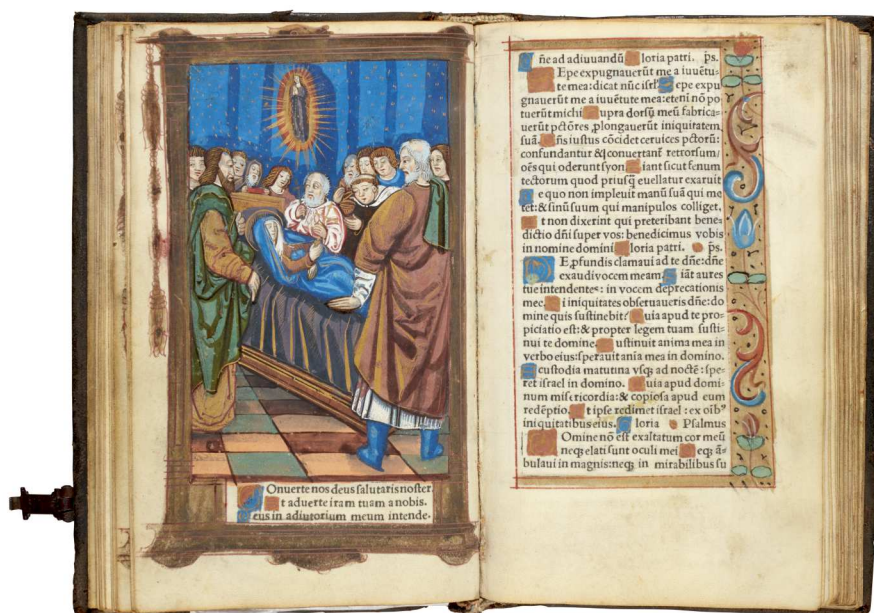 Onuerte nos deus salutaris noster.
t aduerte iram tuam a nobis.
eus in adiutorium meum intende.
ñe ad adiuuandũ loria patri. p̄s.
Epe expugnauerũt me a iuuẽtu-
te mea: dicat nũc isrl' epe expu
gnauerũt me a iuuẽtute mea: eteni nõ po
tuerũt michi upra dorsũ meũ fabrica-
uerũt pctõres ,plongauerũt iniquitatem
suã. ñs iustus cõcidet ceruices pctõrũ:
confundantur & cõuertant̃ retrorsum/
oẽs qui oderunt syon iant sicut fenum
tectorum quod priusq̃ euellatur exaruit
e quo non impleuit manũ suã qui me
tet: & sinũ suum qui manipulos colliget.
t non dixerint qui preteribant bene-
dictio dñi super vos: benedicimus vobis
in nomine domini loria patri. p̄s.
E ,pfundis clamaui ad te dñe: dñe
exaudi vocem meam. iãt aures
tue intendentes: in vocem deprecationis
mee. i iniquitates obseruaueris dñe: do
mine quis sustinebit? uia apud te pro-
piciatio est: & propter legem tuam susti-
nui te domine. ustinuit anima mea in
verbo eius: sperauit aĩa mea in domino.
custodia matutina vsq; ad noctẽ: spe-
ret israel in domino. uia apud domi-
num misericordia: & copiosa apud eum
redẽptio. t ipse redimet israel: ex oĩb'
iniquitatibus eius. loria Psalmus
Omine nõ est exaltatum cor meũ
neq; elati sunt oculi mei eq; ã-
bulaui in magnis: neq; in mirabilibus su